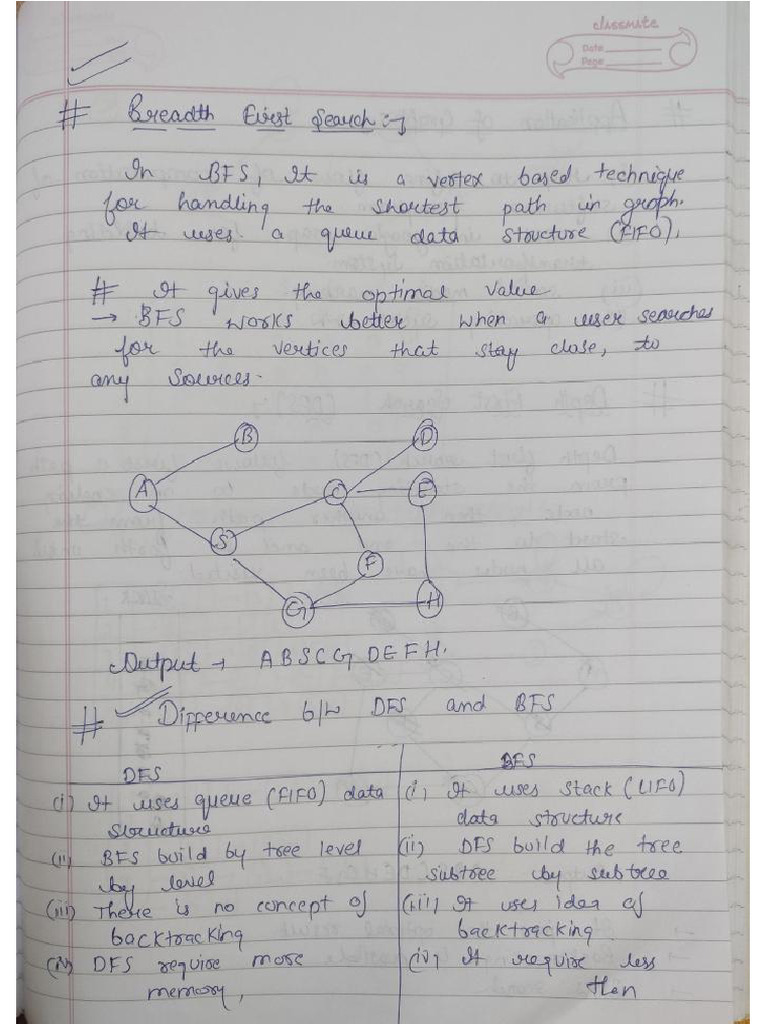 classmate
Date
Page
# Breadth First Search :-
In BFS, It is a vertex based technique
for handling the shortest path in graph.
It uses a queue data structure (FIFO).
# It gives the optimal value
→ BFS works better when a user searches
for the vertices that stay close, to
any sources.
B
D
A
C
E
S
F
G
H
Output → A B S C G D E F H.
# Difference b/w DFS and BFS
DFS
(i) It uses queue (FIFO) data
structure
(ii) BFS build by tree level
by level
(iii) There is no concept of
backtracking
(iv) DFS require more
memory,
BFS
(i) It uses Stack (LIFO)
data structure
(ii) DFS build the tree
subtree by subtree
(iii) It uses idea of
backtracking
(iv) It require less
then